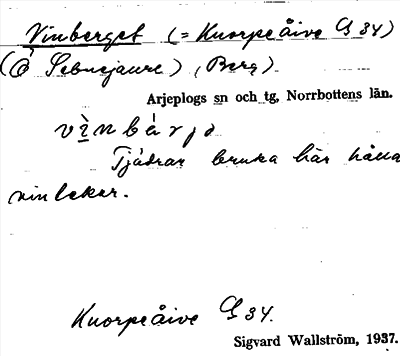 Vinberget (= Kuorpeåive G 34)
(Ö Sebnejaure), (Berg)
Arjeplogs sn och tg, Norrbottens län.
Tjädrar bruka här hålla
sin lekar.
Kuorpeåive G 34.
Sigvard Wallström, 1937.